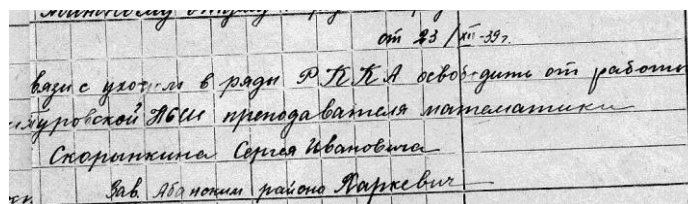 от 23/XII-39 г.
вязи с уходом в ряды РККА освободить от работы
муровской НСШ преподавателя математики
Скорынкина Сергея Ивановича
Зав. Абанским районо Харкевич